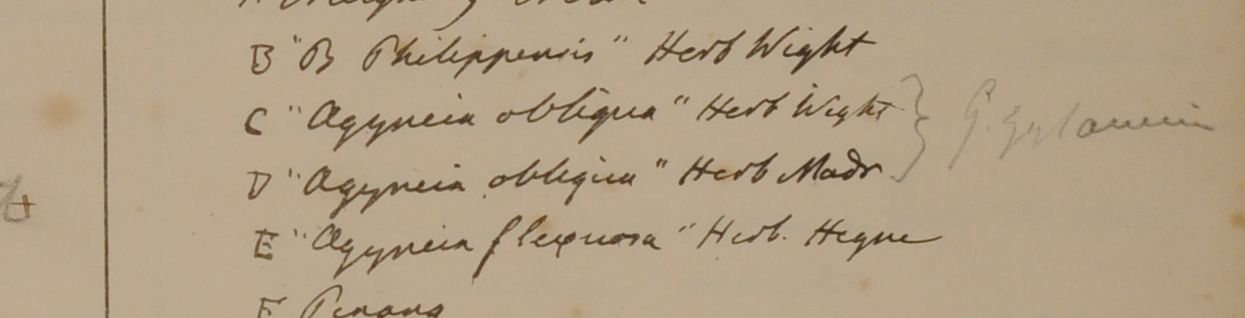 B "B Philippensis" Herb Wight
C "Agyneia obliqua" Herb Wight
D "Agyneia obliqua" Herb Madr
E "Agyneia flexuosa" Herb. Heyne
F Penang